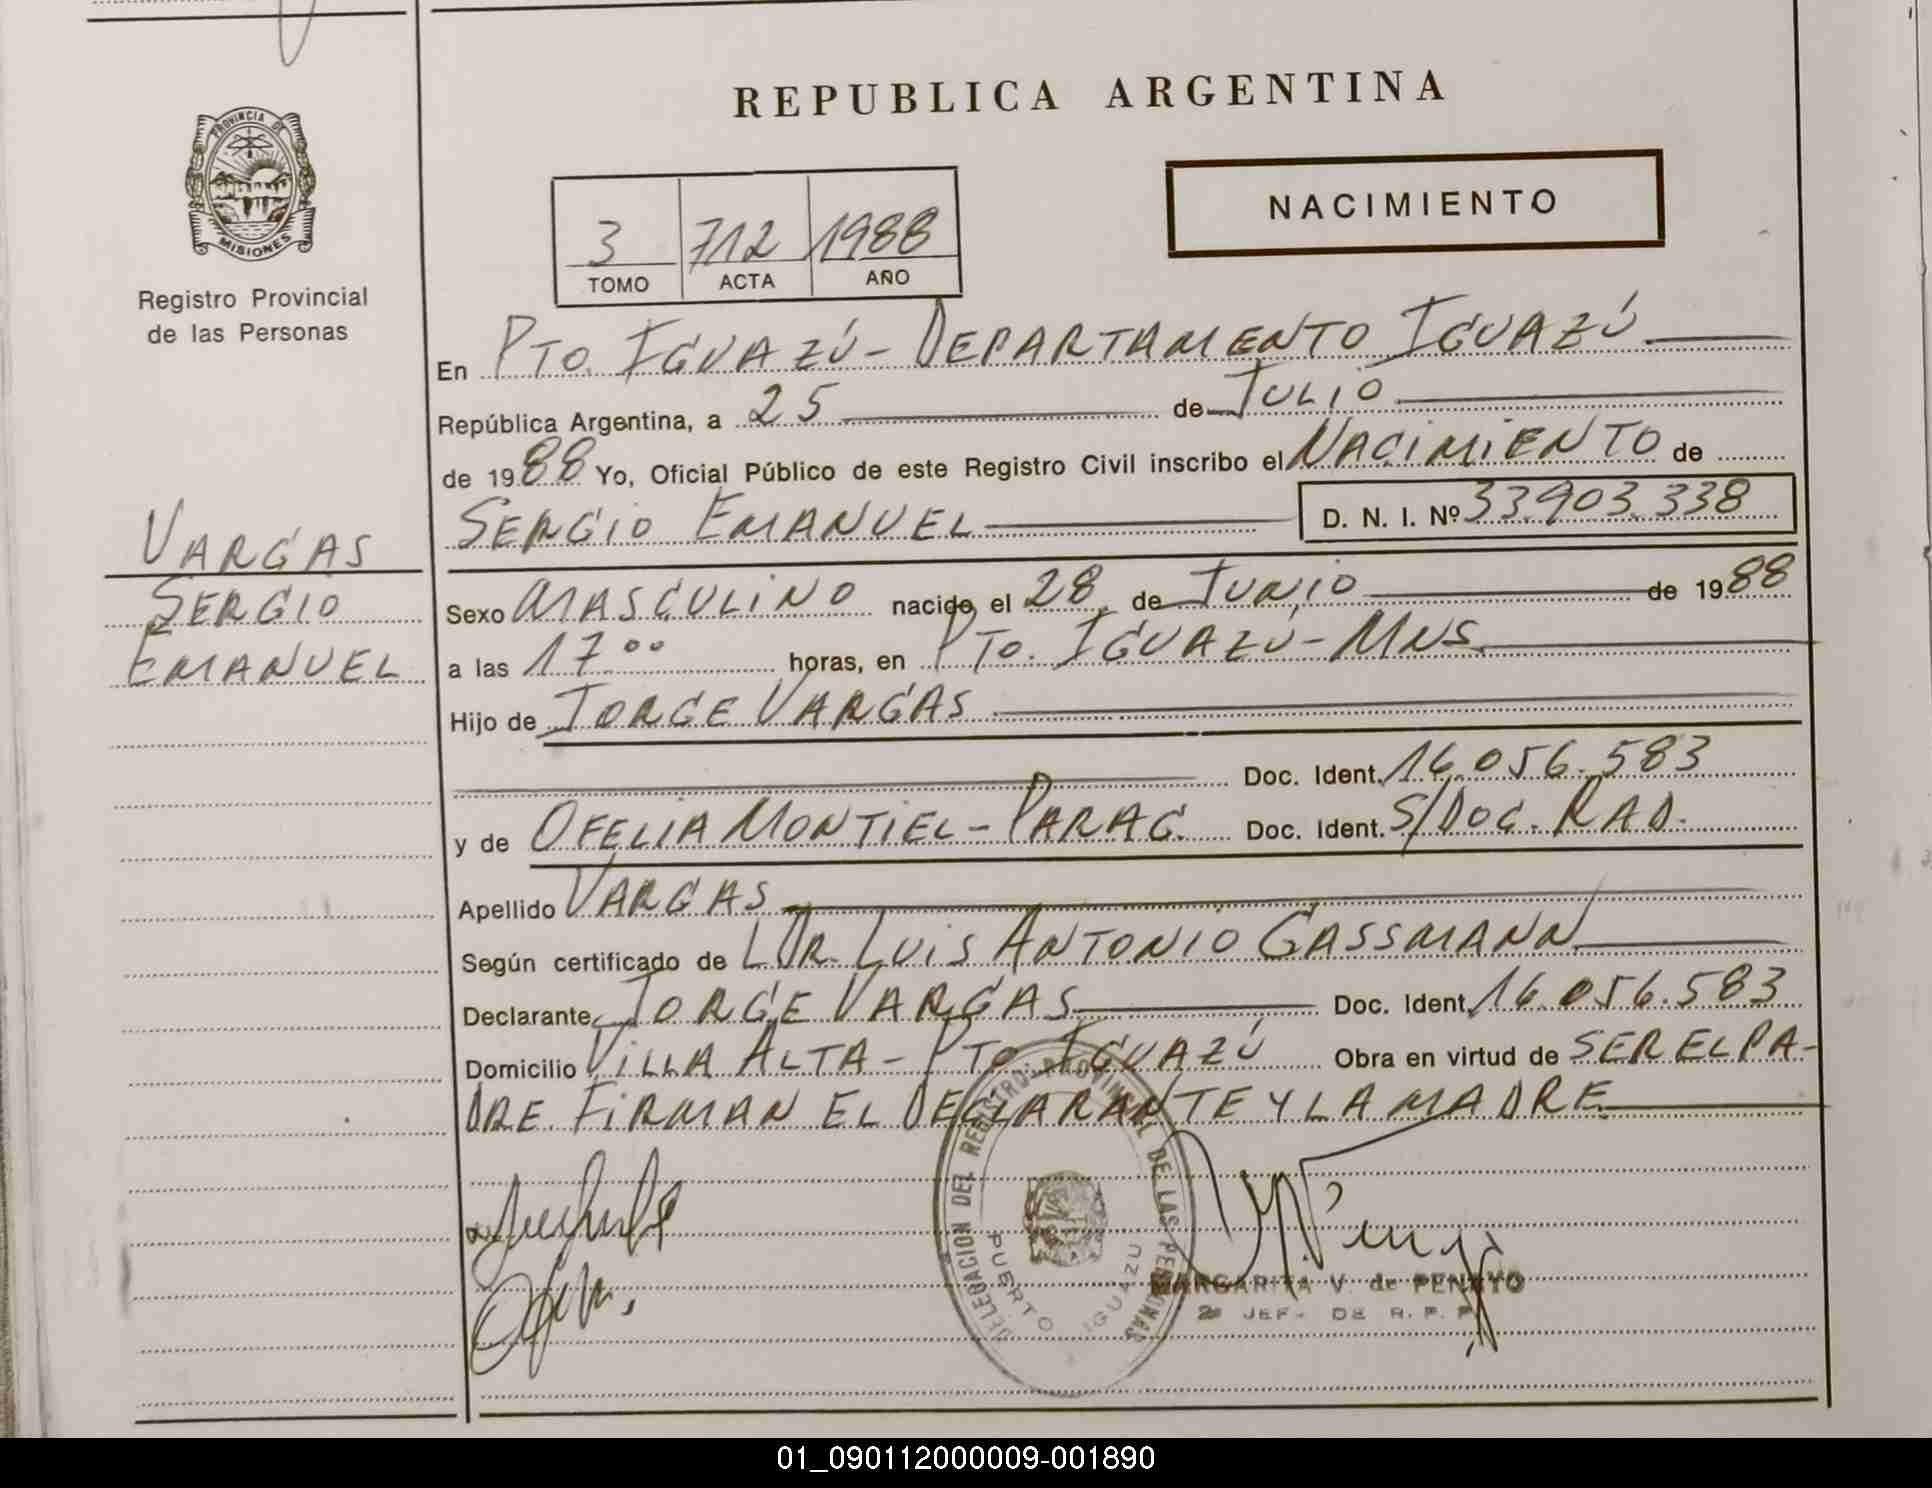 REPUBLICA ARGENTINA
PROVINCIA DE
MISIONES
Registro Provincial
de las Personas
3 712 1988
TOMO ACTA AÑO
NACIMIENTO
En PTO. IGUAZÚ - DEPARTAMENTO IGUAZÚ
República Argentina, a 25 de JULIO
de 1988 Yo, Oficial Público de este Registro Civil inscribo el NACIMIENTO de
SERGIO EMANUEL D. N. I. Nº 33.903.338
VARGAS
SERGIO
EMANUEL
Sexo MASCULINO nacido el 28 de JUNIO de 1988
a las 17⁰⁰ horas, en PTO. IGUAZÚ - MNS.
Hijo de JORGE VARGAS
Doc. Ident. 16.056.583
y de OFELIA MONTIEL - PARAG. Doc. Ident. S/DOC. RAD.
Apellido VARGAS
Según certificado de DR. LUIS ANTONIO GASSMANN
Declarante JORGE VARGAS Doc. Ident. 16.056.583
Domicilio VILLA ALTA - PTO. IGUAZÚ Obra en virtud de SER EL PA-
DRE. FIRMAN EL DECLARANTE Y LA MADRE
DELEGACION DEL REGISTRO PROVINCIAL DE LAS PERSONAS
PUERTO IGUAZU
MARGARITA V. de PENAYO
2º JEFE DE R. P. P.
01_090112000009-001890